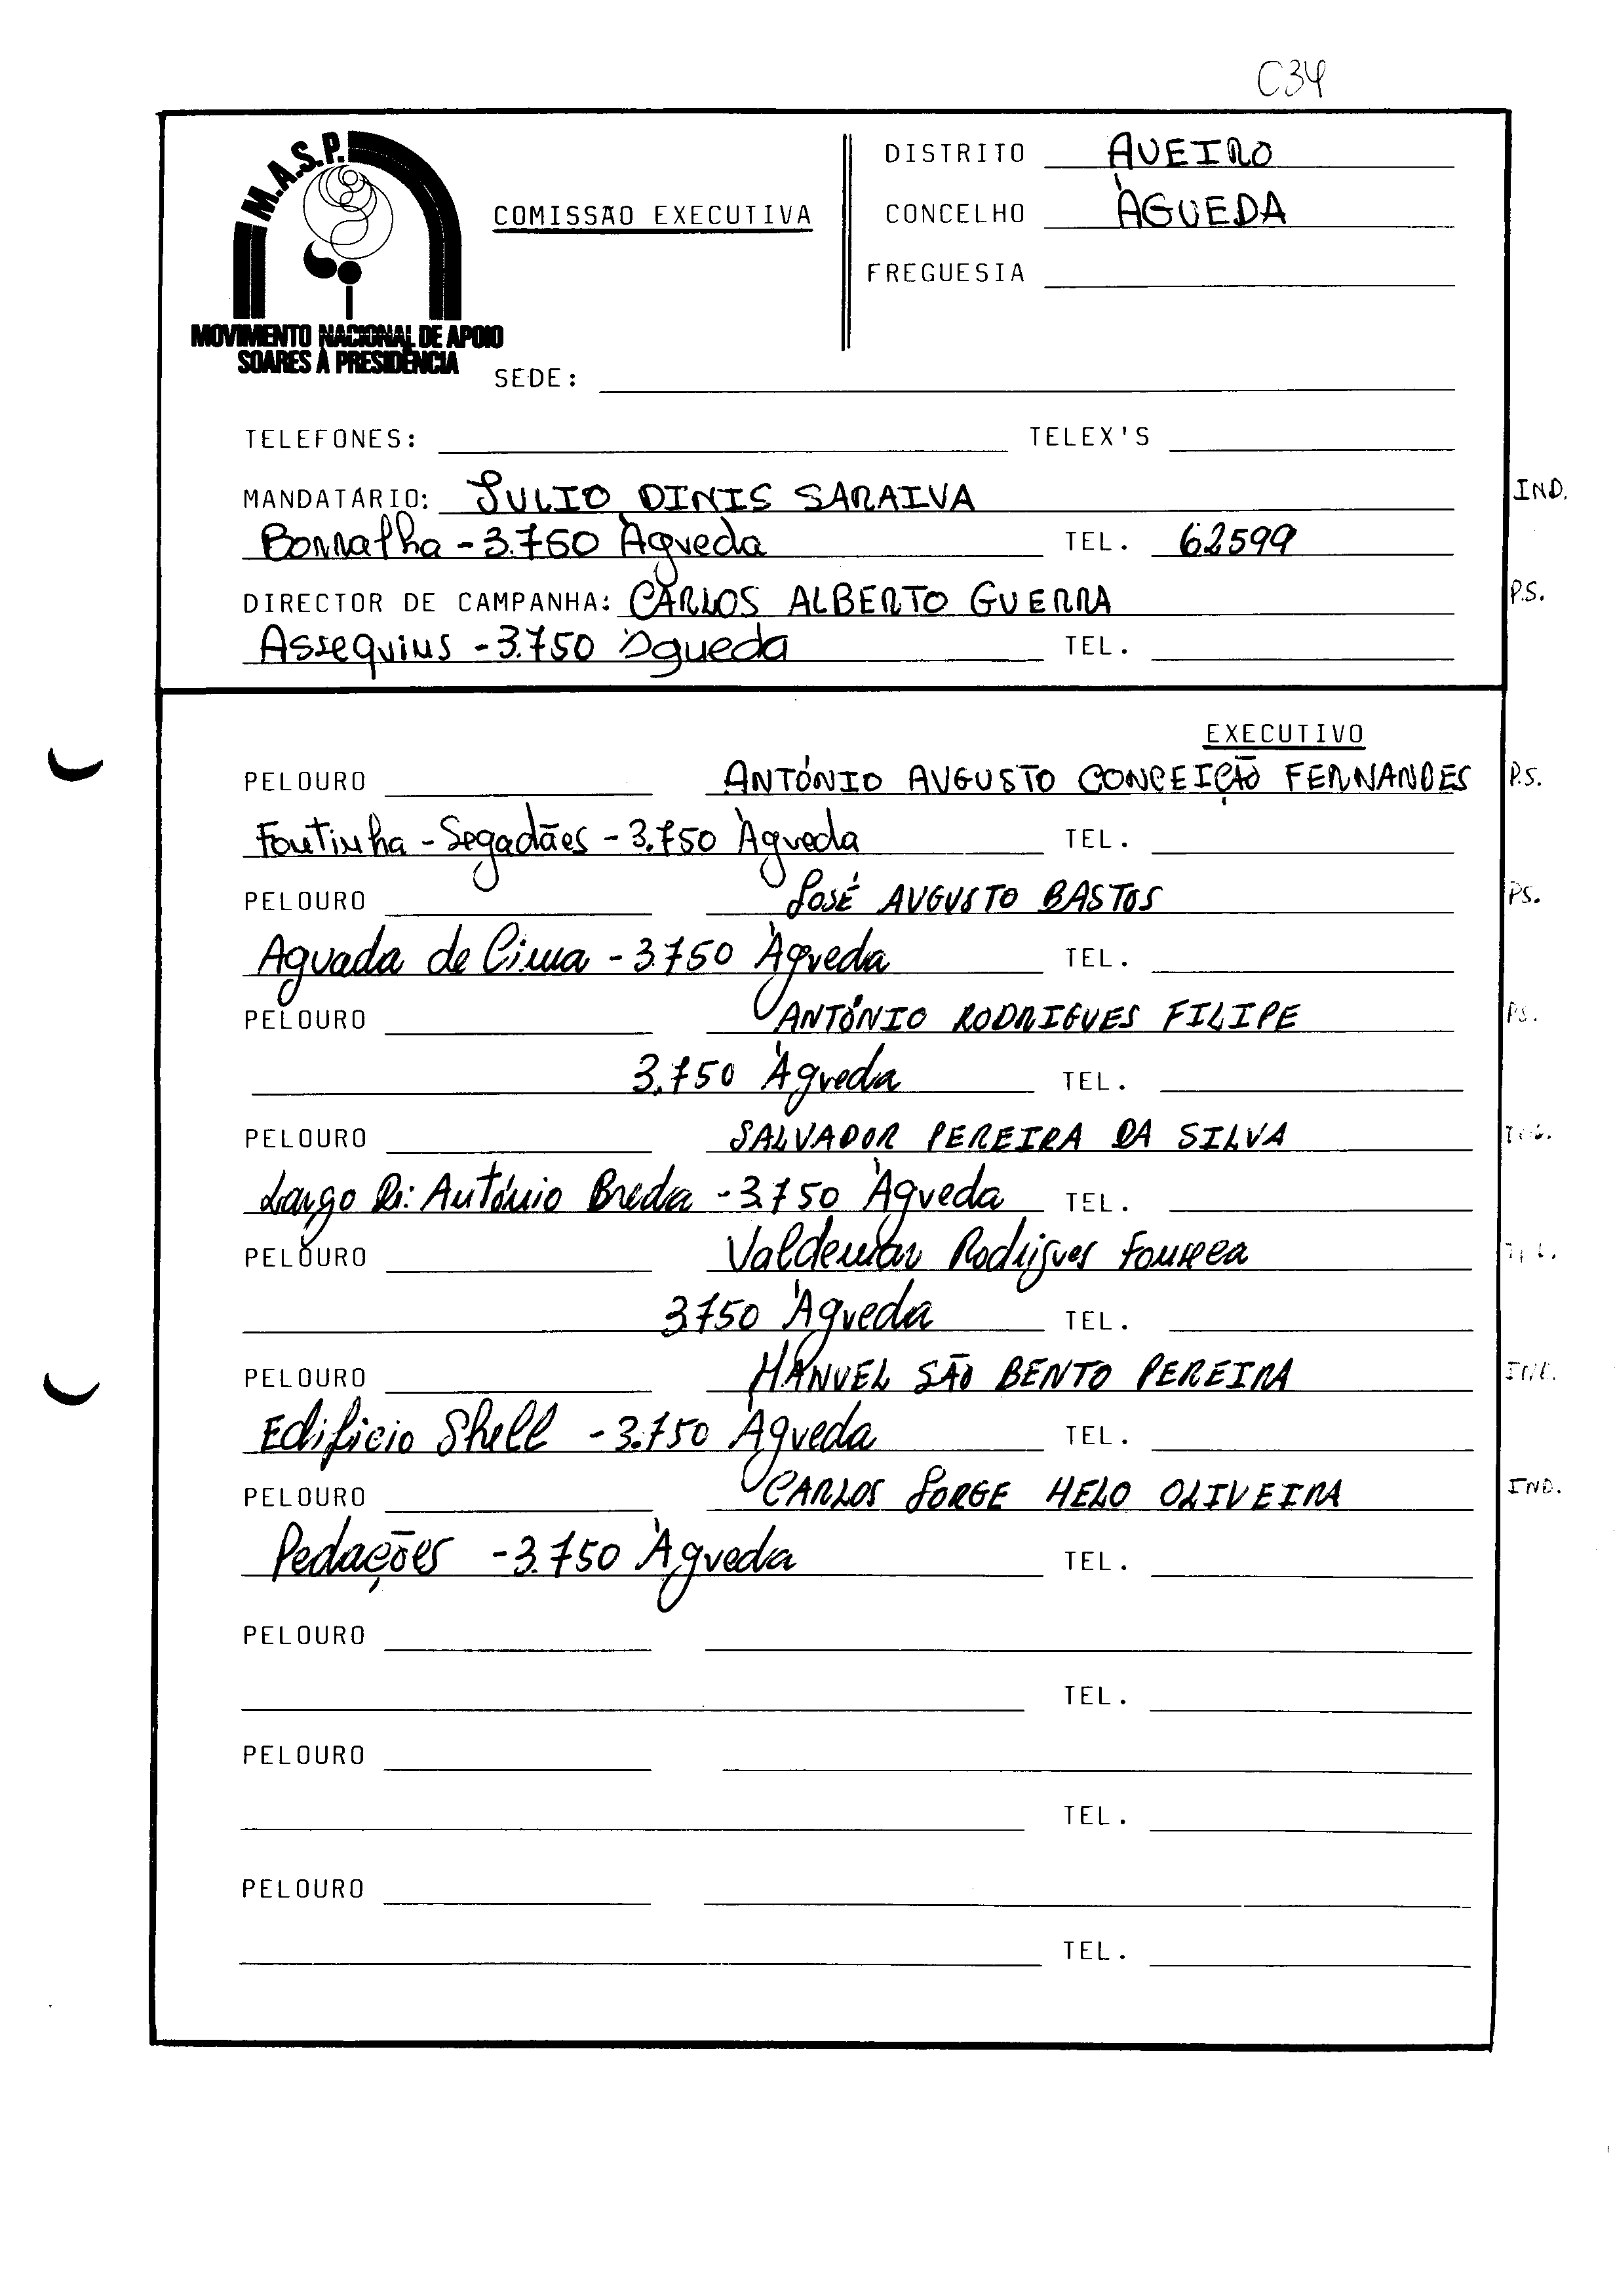 C34
M.A.S.P.
MOVIMENTO NACIONAL DE APOIO
SOARES À PRESIDÊNCIA
COMISSÃO EXECUTIVA
DISTRITO AVEIRO
CONCELHO ÀGUEDA
FREGUESIA
SEDE:
TELEFONES: TELEX'S
MANDATÁRIO: JULIO DINIS SARAIVA IND.
Borralha - 3.750 Àgueda TEL. 62599
DIRECTOR DE CAMPANHA: CARLOS ALBERTO GUERRA P.S.
Assequins - 3.750 Àgueda TEL.
EXECUTIVO
PELOURO ANTÓNIO AUGUSTO CONCEIÇÃO FERNANDES P.S.
Fontinha - Segadães - 3.750 Àgueda TEL.
PELOURO JOSÉ AUGUSTO BASTOS PS.
Aguada de Cima - 3.750 Àgueda TEL.
PELOURO ANTÓNIO RODRIGUES FILIPE PS.
3.750 Àgueda TEL.
PELOURO SALVADOR PEREIRA DA SILVA
Largo Dr. António Breda - 3.750 Àgueda TEL.
PELOURO Valdemar Rodrigues Fonseca
3750 Àgueda TEL.
PELOURO MANUEL SÃO BENTO PEREIRA IND.
Edificio Shell - 3.750 Àgueda TEL.
PELOURO CARLOS JORGE MELO OLIVEIRA IND.
Pedações - 3.750 Àgueda TEL.
PELOURO
TEL.
PELOURO
TEL.
PELOURO
TEL.